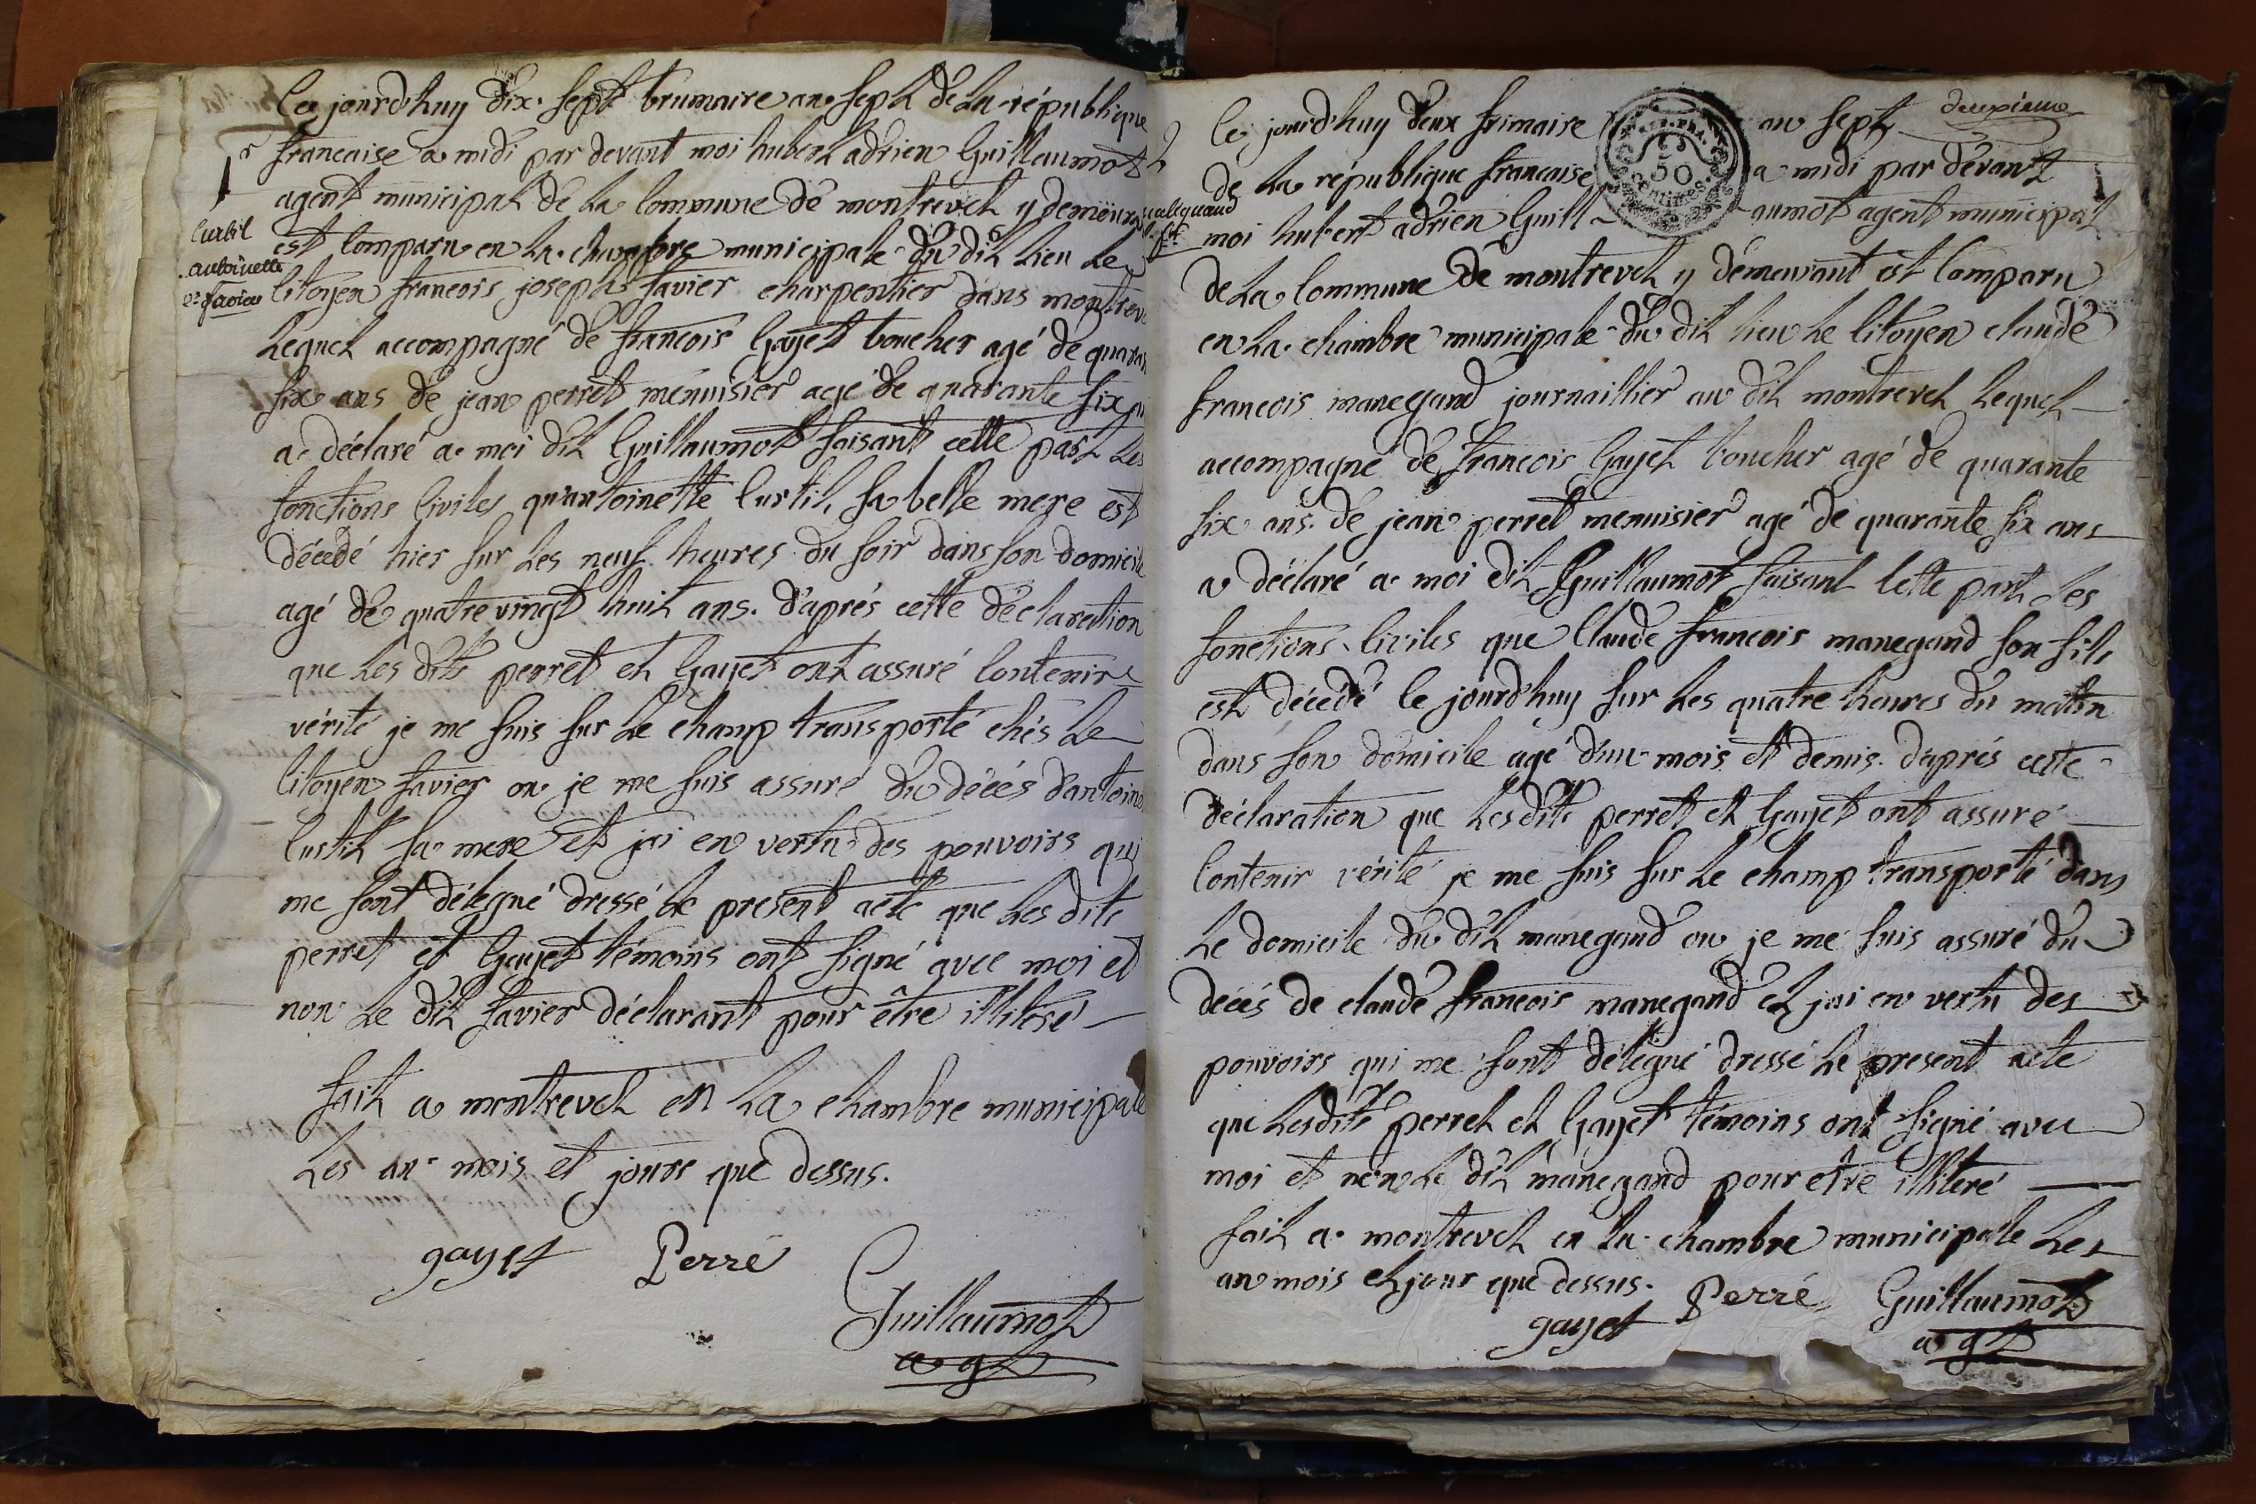 Ce jourd'huy dix sept brumaire an sept de la république
francaise a midi par devant moi hubert adrien Guillaumot
agent municipal de la Commune de montrevel y demeura
est Comparu en la chambre municipale du dit lieu le
Citoyen francois joseph favier charpentier dans montrev
lequel accompagné de francois Gayet boucher agé de quaran
six ans de jean perret menuisier agé de quarante six
a déclaré a moi dit Guillaumot faisant cette part les
fonctions Civiles qu'antoinette Curtil, sa belle mere est
décédé hier sur les neuf heures du soir dans son domicile
agé de quatre vingt huit ans. d'aprés cette déclaration
que les dits perret et Gayet ont assuré Contenir
vérité je me suis sur le champ transporté chés le
Citoyen favier ou je me suis assuré du décés d'antoine
Curtil sa mere et jai en vertu des pouvoirs qui
me sont délegué dressé le present acte que les dits
perret et Gayet témoins ont signé avec moi et
non le dit favier déclarant pour être illiteré
fait a montrevel en la chambre municipale
les an mois et jours que dessus.
gayet Perré
Guillaumot
agt
1r
Curtil
antoinette
ve favier
deuxieme
Ce jourd'huy deux frimaire an sept
de la république francaise a midi par devant
moi hubert adrien Guill-aumot agent municipal
de la Commune de montrevel y démeurant est Comparu
en la chambre municipale du dit lieu le Citoyen claude
francois manegand journaillier au dit montrevel lequel
accompagné de francois Gayet boucher agé de quarante
six ans de jean perret menuisier agé de quarante six ans
a déclaré a moi dit Guillaumot faisant Cette part les
fonctions Civiles que Claude francois manegand son fils
est décédé Ce jourd'huy sur les quatre heures du matin
dans son domicile agé d'un mois et demis. d'aprés cette
déclaration que lesdits perret et Gayet ont assuré
Contenir vérité je me suis sur le champ transporté dans
le domicile du dit manegand ou je me suis assuré du
décés de claude francois manegand et jai en vertu des
pouvoirs qui me sont délegué dressé le present acte
que lesdits perret et Gayet témoins ont signé avec
moi et non le dit manegand pour être illiteré
fait a montrevel en la chambre municipale les
an mois et jour que dessus.
gayet Perré Guillaumot
agt
2
50
centimes